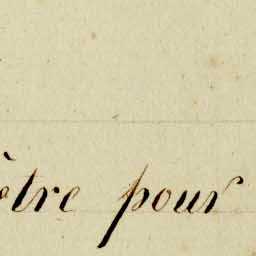 être pour